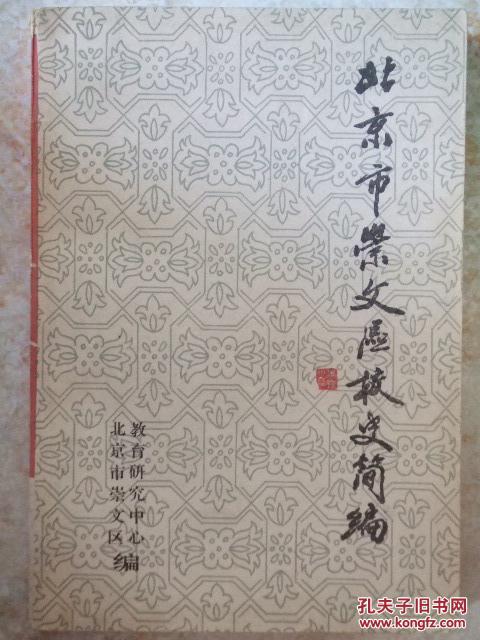 北京市崇文區校史简编
北京市崇文区
教育研究中心
编
孔夫子旧书网
www.kongfz.com